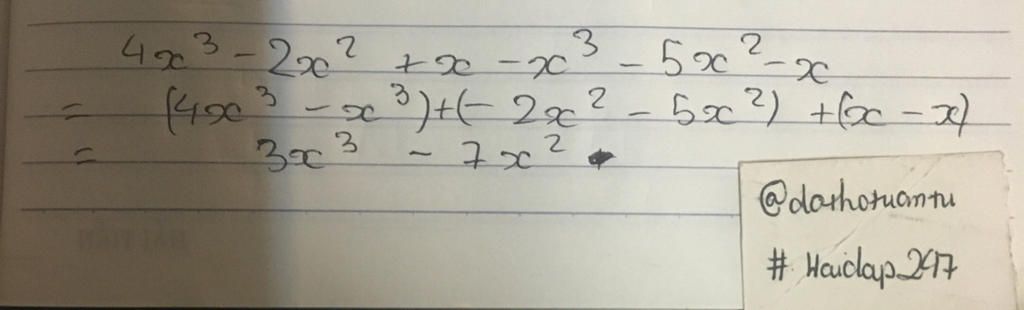 4x³ - 2x² + x - x³ - 5x² - x
= (4x³ - x³) + (- 2x² - 5x²) + (x - x)
= 3x³ - 7x²
@dathotuantu
# Hoidap247